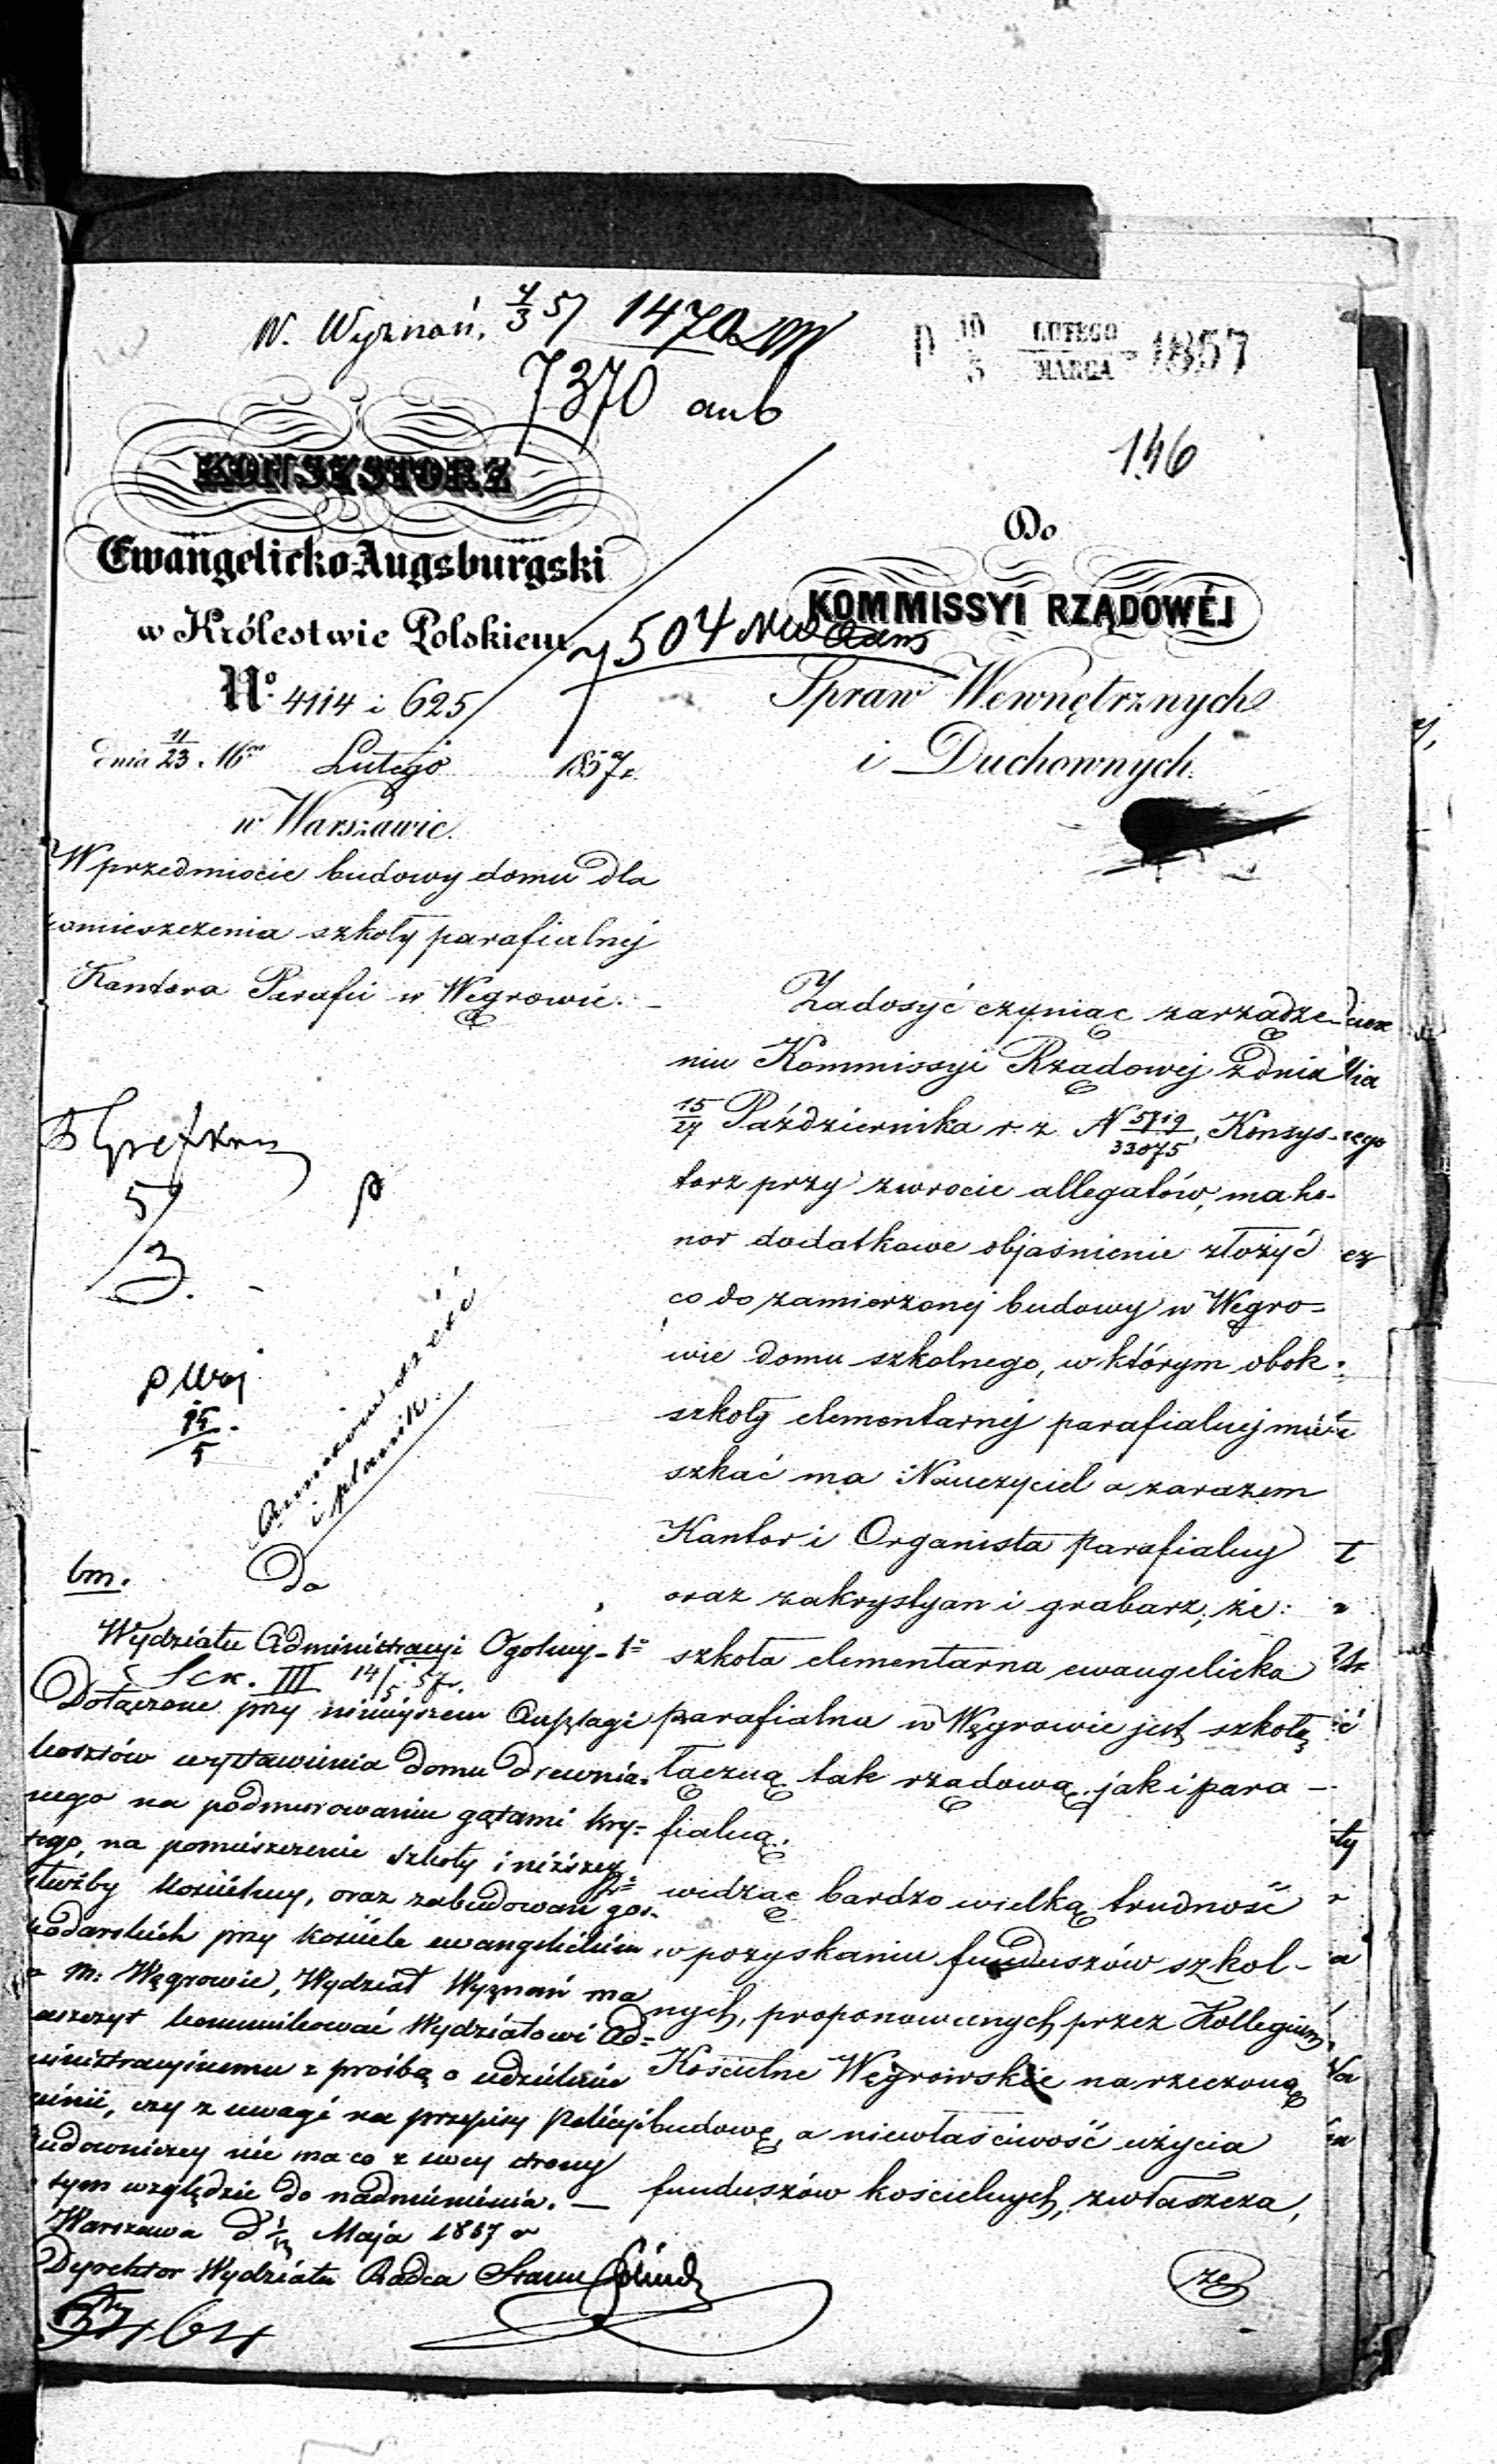 W. Wyznań. 4/3 57 1470
7370
P 19/5 LUTEGO/MARCA 1857
146
KONSYSTORZ
Ewangelicko-Augsburgski
w Królestwie Polskiem
No. 4114 i 625
dnia 11/23. Lutego 1857 r.
w Warszawie.
W przedmiocie budowy domu dla
zamieszczenia szkoły parafialnej
Kantora Parafii w Węgrowie. –
Do
KOMMISSYI RZĄDOWÉJ
7504
Spraw Wewnętrznych
i Duchownych.
Zadosyć czyniąc zarządze-
niu Kommissyi Rządowej z dnia
15/27 Października r. z. N 5719/33075, Konsys-
torz przy zwrocie allegatów, ma ho-
nor dodatkowe objaśnienie złożyć
co do zamierzonej budowy w Węgro-
wie domu szkolnego, w którym obok
szkoły elementarnej parafialnej mie
szkać ma Nauczyciel a zarazem
Kantor i Organista parafialny
oraz zakrystyan i grabarz, że:
1o szkoła elementarna ewangelicka
parafialna w Węgrowie jest szkołą
łączną tak rządową jak i para-
fialną.
2o widząc bardzo wielką trudność
w pozyskaniu funduszów szkol-
nych, proponowanych przez Kollegium
Kościelne Węgrowskie na rzeczoną
budowę, a niewłaściwość użycia
funduszów kościelnych, zwłaszcza,
że
5/3.
15/5
i planik.
bm.
Do
Wydziału Administracyi Ogólnej
Sek. III 14/5 57 r.
Dołączone przy niniejszem Anszlagi
kosztów wystawienia domu drewnia-
nego na podmurowaniu gątami kry-
tego, na pomieszczenie szkoły i niższej
służby kościelnej, oraz zabudowań gos-
podarskich przy kościele ewangelickim
w m: Węgrowie, Wydział Wyznań ma
zaszczyt kommunikować Wydziałowi Ad-
ministracyjnemu z prośbą o udzielenie
opinii, czy z uwagi na przepisy Policyi
budowniczej nie ma co z swej strony
w tym względzie do nadmienienia. –
Warszawa d Maja 1857 r
Dyrektor Wydziału Radca Stanu